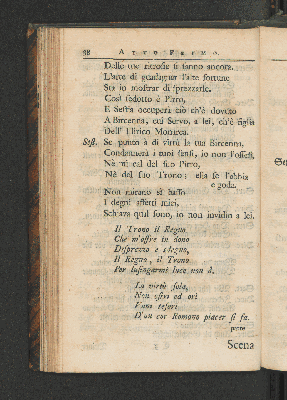 38 ATTO PRIMO.
Dalle tue ritrose si fanno ancora.
L'arte di guadagnar l'alte fortune
Sta in mostrar di sprezzarle.
Così sedotto è Pirro,
E Sesta occuperà ciò ch'è dovuto
A Bircenna, cui Servo, a lei, ch'è figlia
Dell' Illirico Monarca.
Sest. Se punto à di virtù la tua Bircenna,
Condannerà i tuoi sensi, io non l'offesi,
Nè mi cal del suo Pirro,
Nè del suo Trono; ella se l'abbia
e goda.
Non mirano sì basso
I degni affetti miei,
Schiava qual sono, io non invidio a lei.
Il Trono il Regno
Che m'offre in dono
Disprezzo e sdegno,
Il Regno, il Trono
Per lusingarmi luce non à.
La virtù sola,
Non ostri ed ori
Vani tesori
D'un cor Romano piacer si fa.
parte
Scena